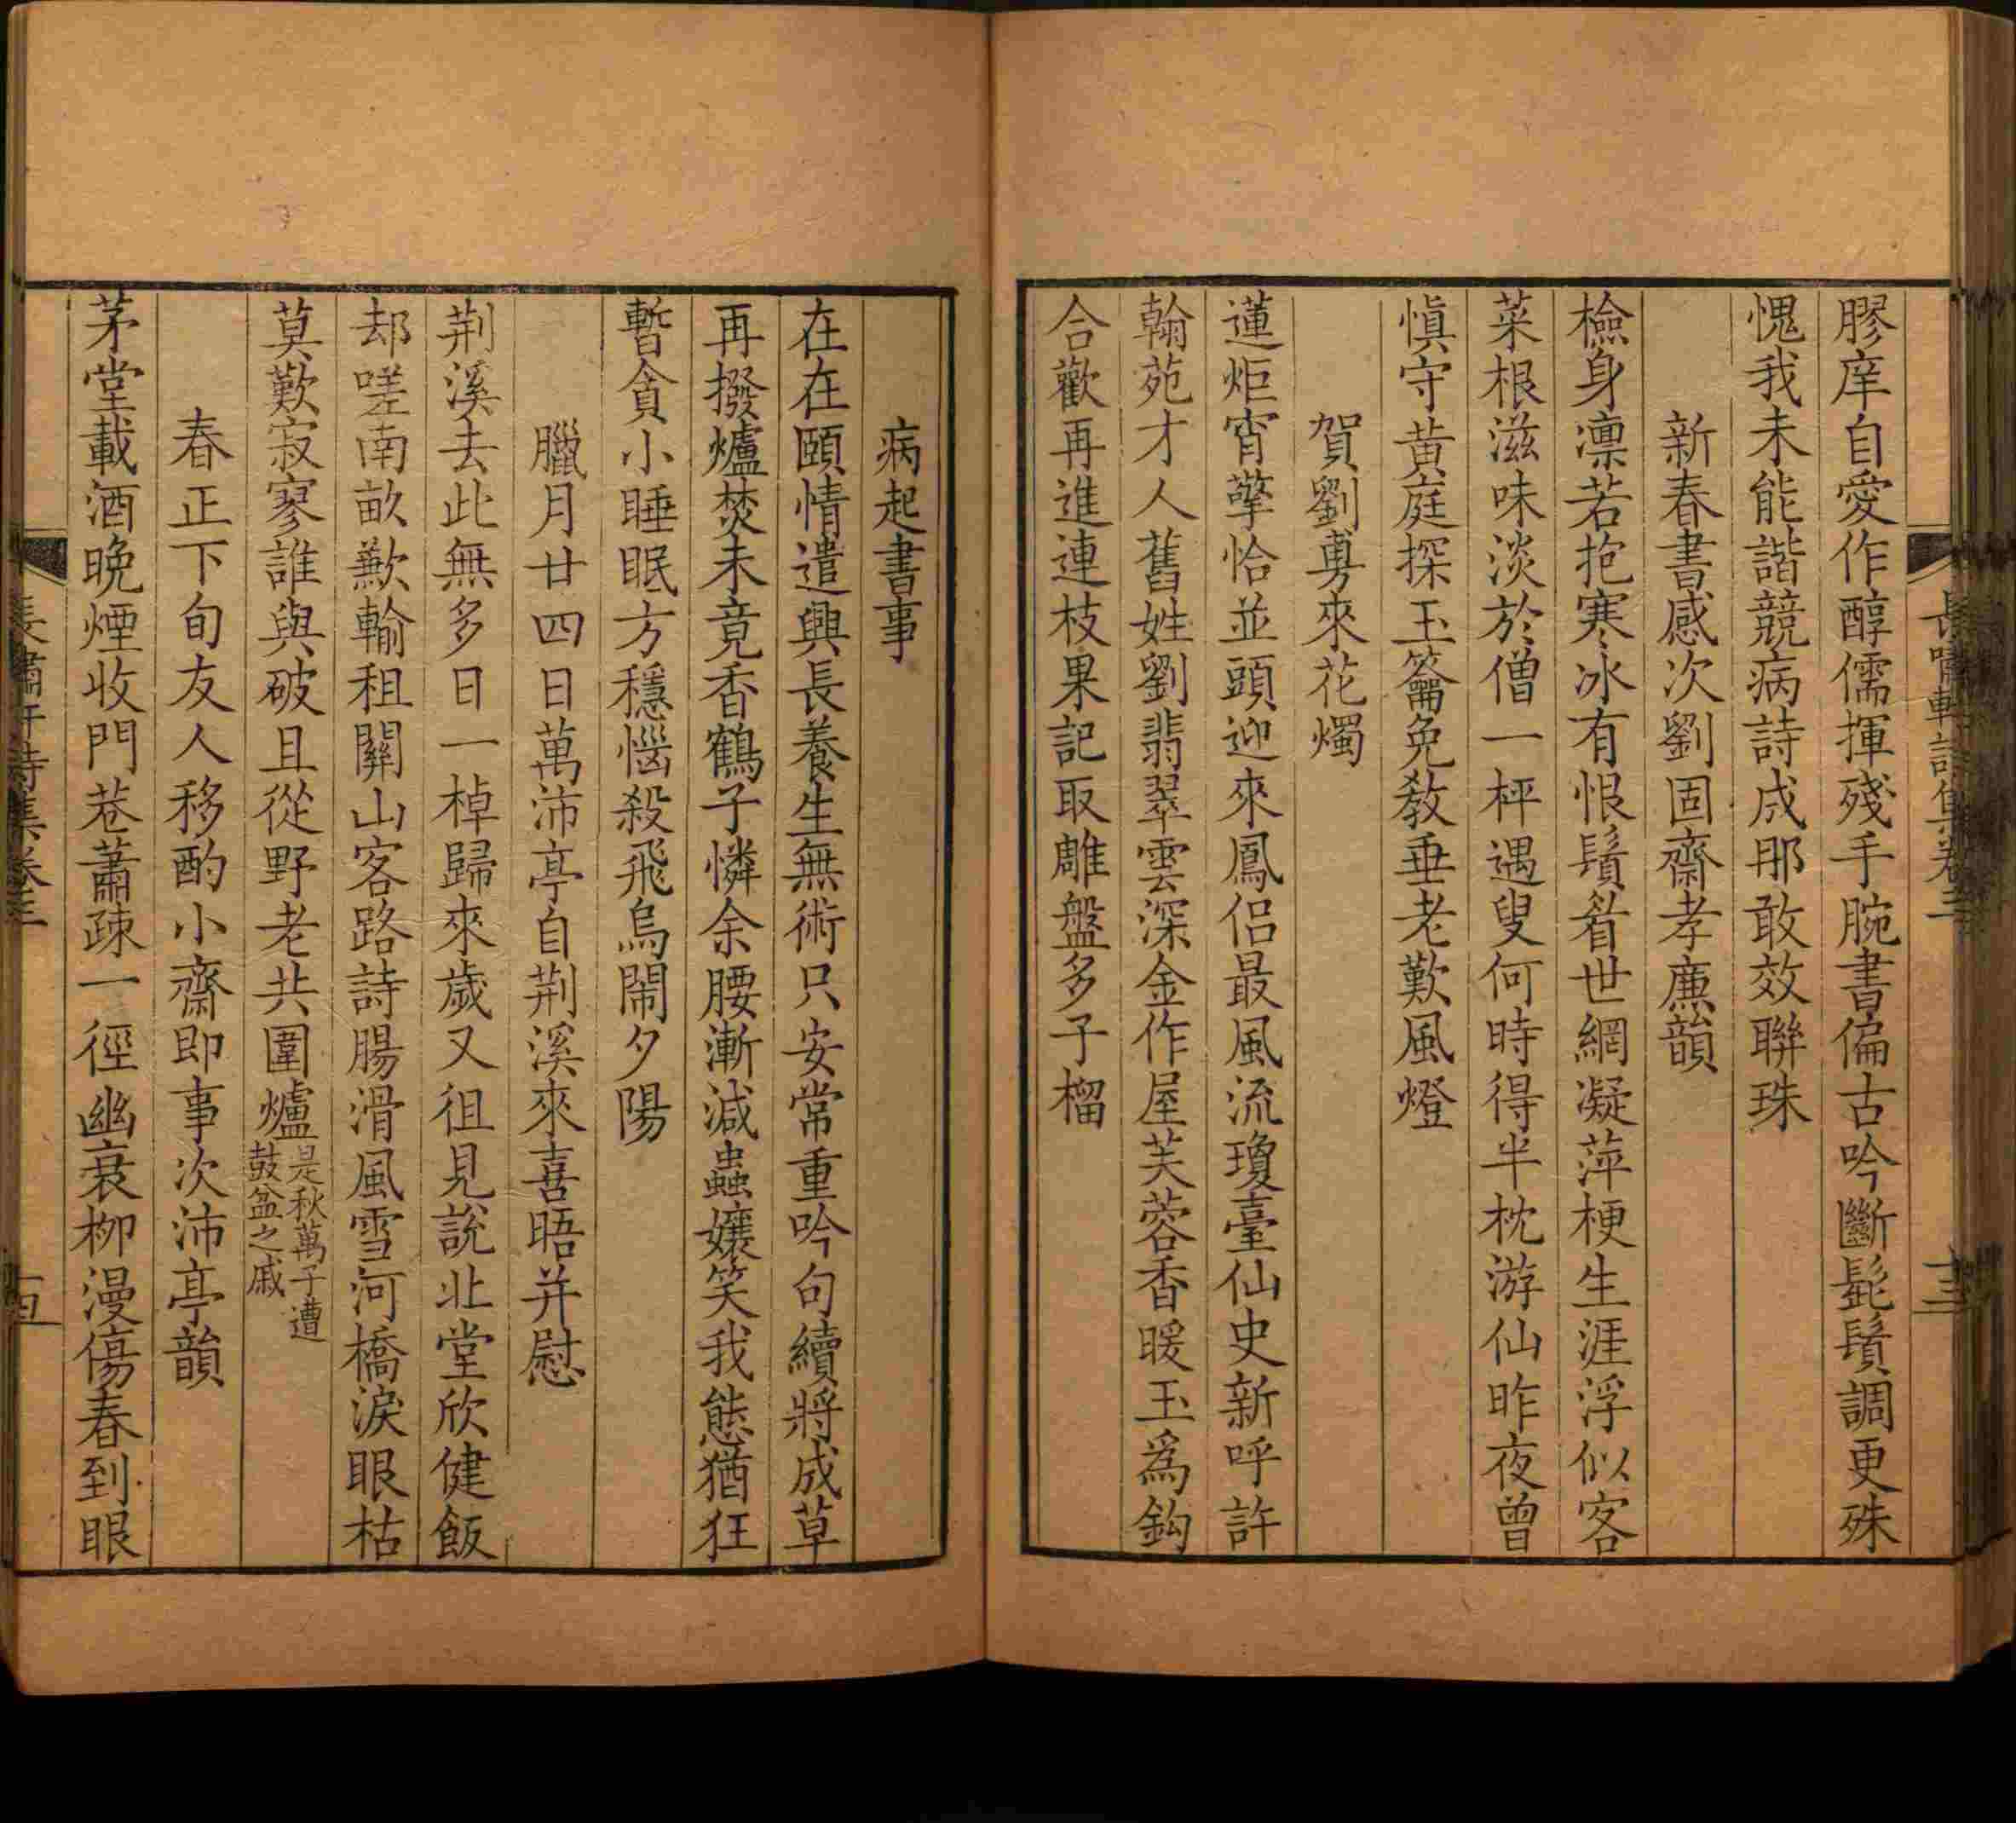 長嘯軒詩集卷三
十三
膠庠自愛作醇儒揮殘手腕書偏古吟斷髭鬚調更殊
愧我未能諧競病詩成那敢效聯珠
新春書感次劉固齋孝廉韻
檢身凛若抱寒冰有恨鬚眉世網凝萍梗生涯浮似客
菜根滋味淡於僧一枰遇叟何時得半枕游仙昨夜曾
愼守黃庭探玉籥免敎垂老歎風燈
賀劉勇來花燭
蓮炬宵擎恰並頭迎來鳳侶最風流瓊臺仙史新呼許
翰苑才人舊姓劉翡翠雲深金作屋芙蓉香暖玉爲鈎
合歡再進連枝果記取雕盤多子榴
病起書事
在在頤情遣興長養生無術只安常重吟句續將成草
再撥爐焚未竟香鶴子憐余腰漸減蟲孃笑我態猶狂
暫貪小睡眠方穩惱殺飛烏鬧夕陽
臘月廿四日萬沛亭自荆溪來喜晤并慰
荆溪去此無多日一棹歸來歲又徂見說北堂欣健飯
却嗟南畝歉輸租關山客路詩腸滑風雪河橋淚眼枯
莫歎寂寥誰與破且從野老共圍爐是秋萬子遭
鼓盆之戚
春正下旬友人移酌小齋即事次沛亭韻
茅堂載酒晚煙收門巷蕭疎一徑幽衰柳漫傷春到眼
長嘯軒詩集卷三